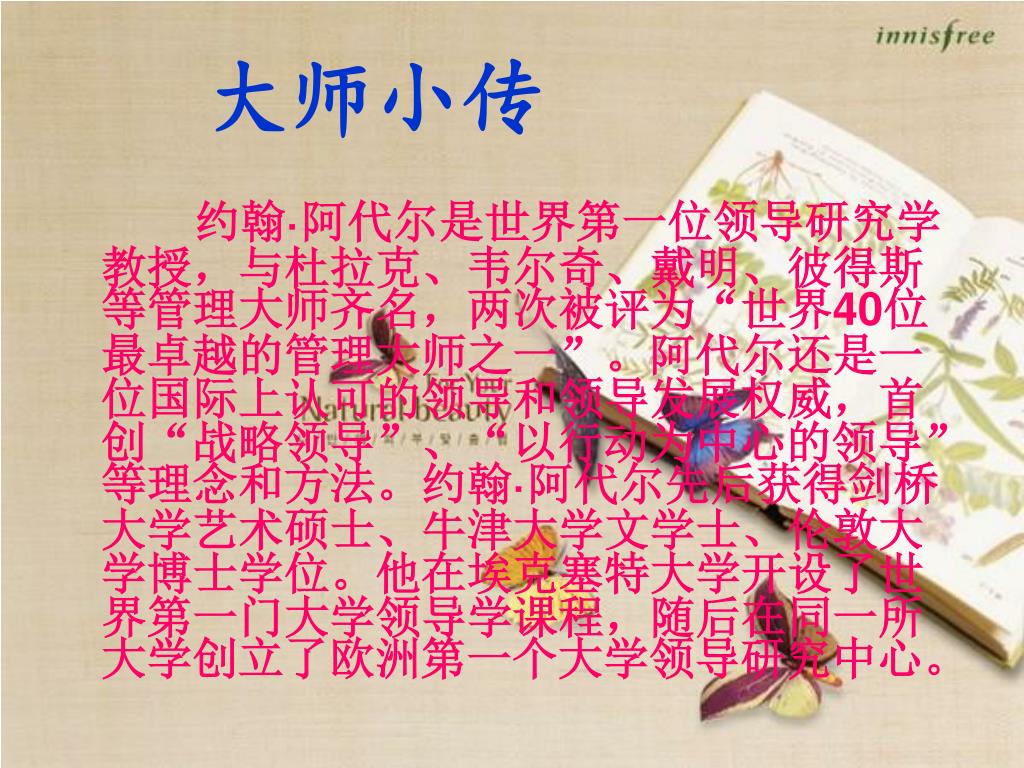 innisfree
大师小传
约翰·阿代尔是世界第一位领导研究学
教授，与杜拉克、韦尔奇、戴明、彼得斯
等管理大师齐名，两次被评为“世界40位
最卓越的管理大师之一”。阿代尔还是一
位国际上认可的领导和领导发展权威，首
创“战略领导”、“以行动为中心的领导”
等理念和方法。约翰·阿代尔先后获得剑桥
大学艺术硕士、牛津大学文学士、伦敦大
学博士学位。他在埃克塞特大学开设了世
界第一门大学领导学课程，随后在同一所
大学创立了欧洲第一个大学领导研究中心。
For Your
Natural beauty